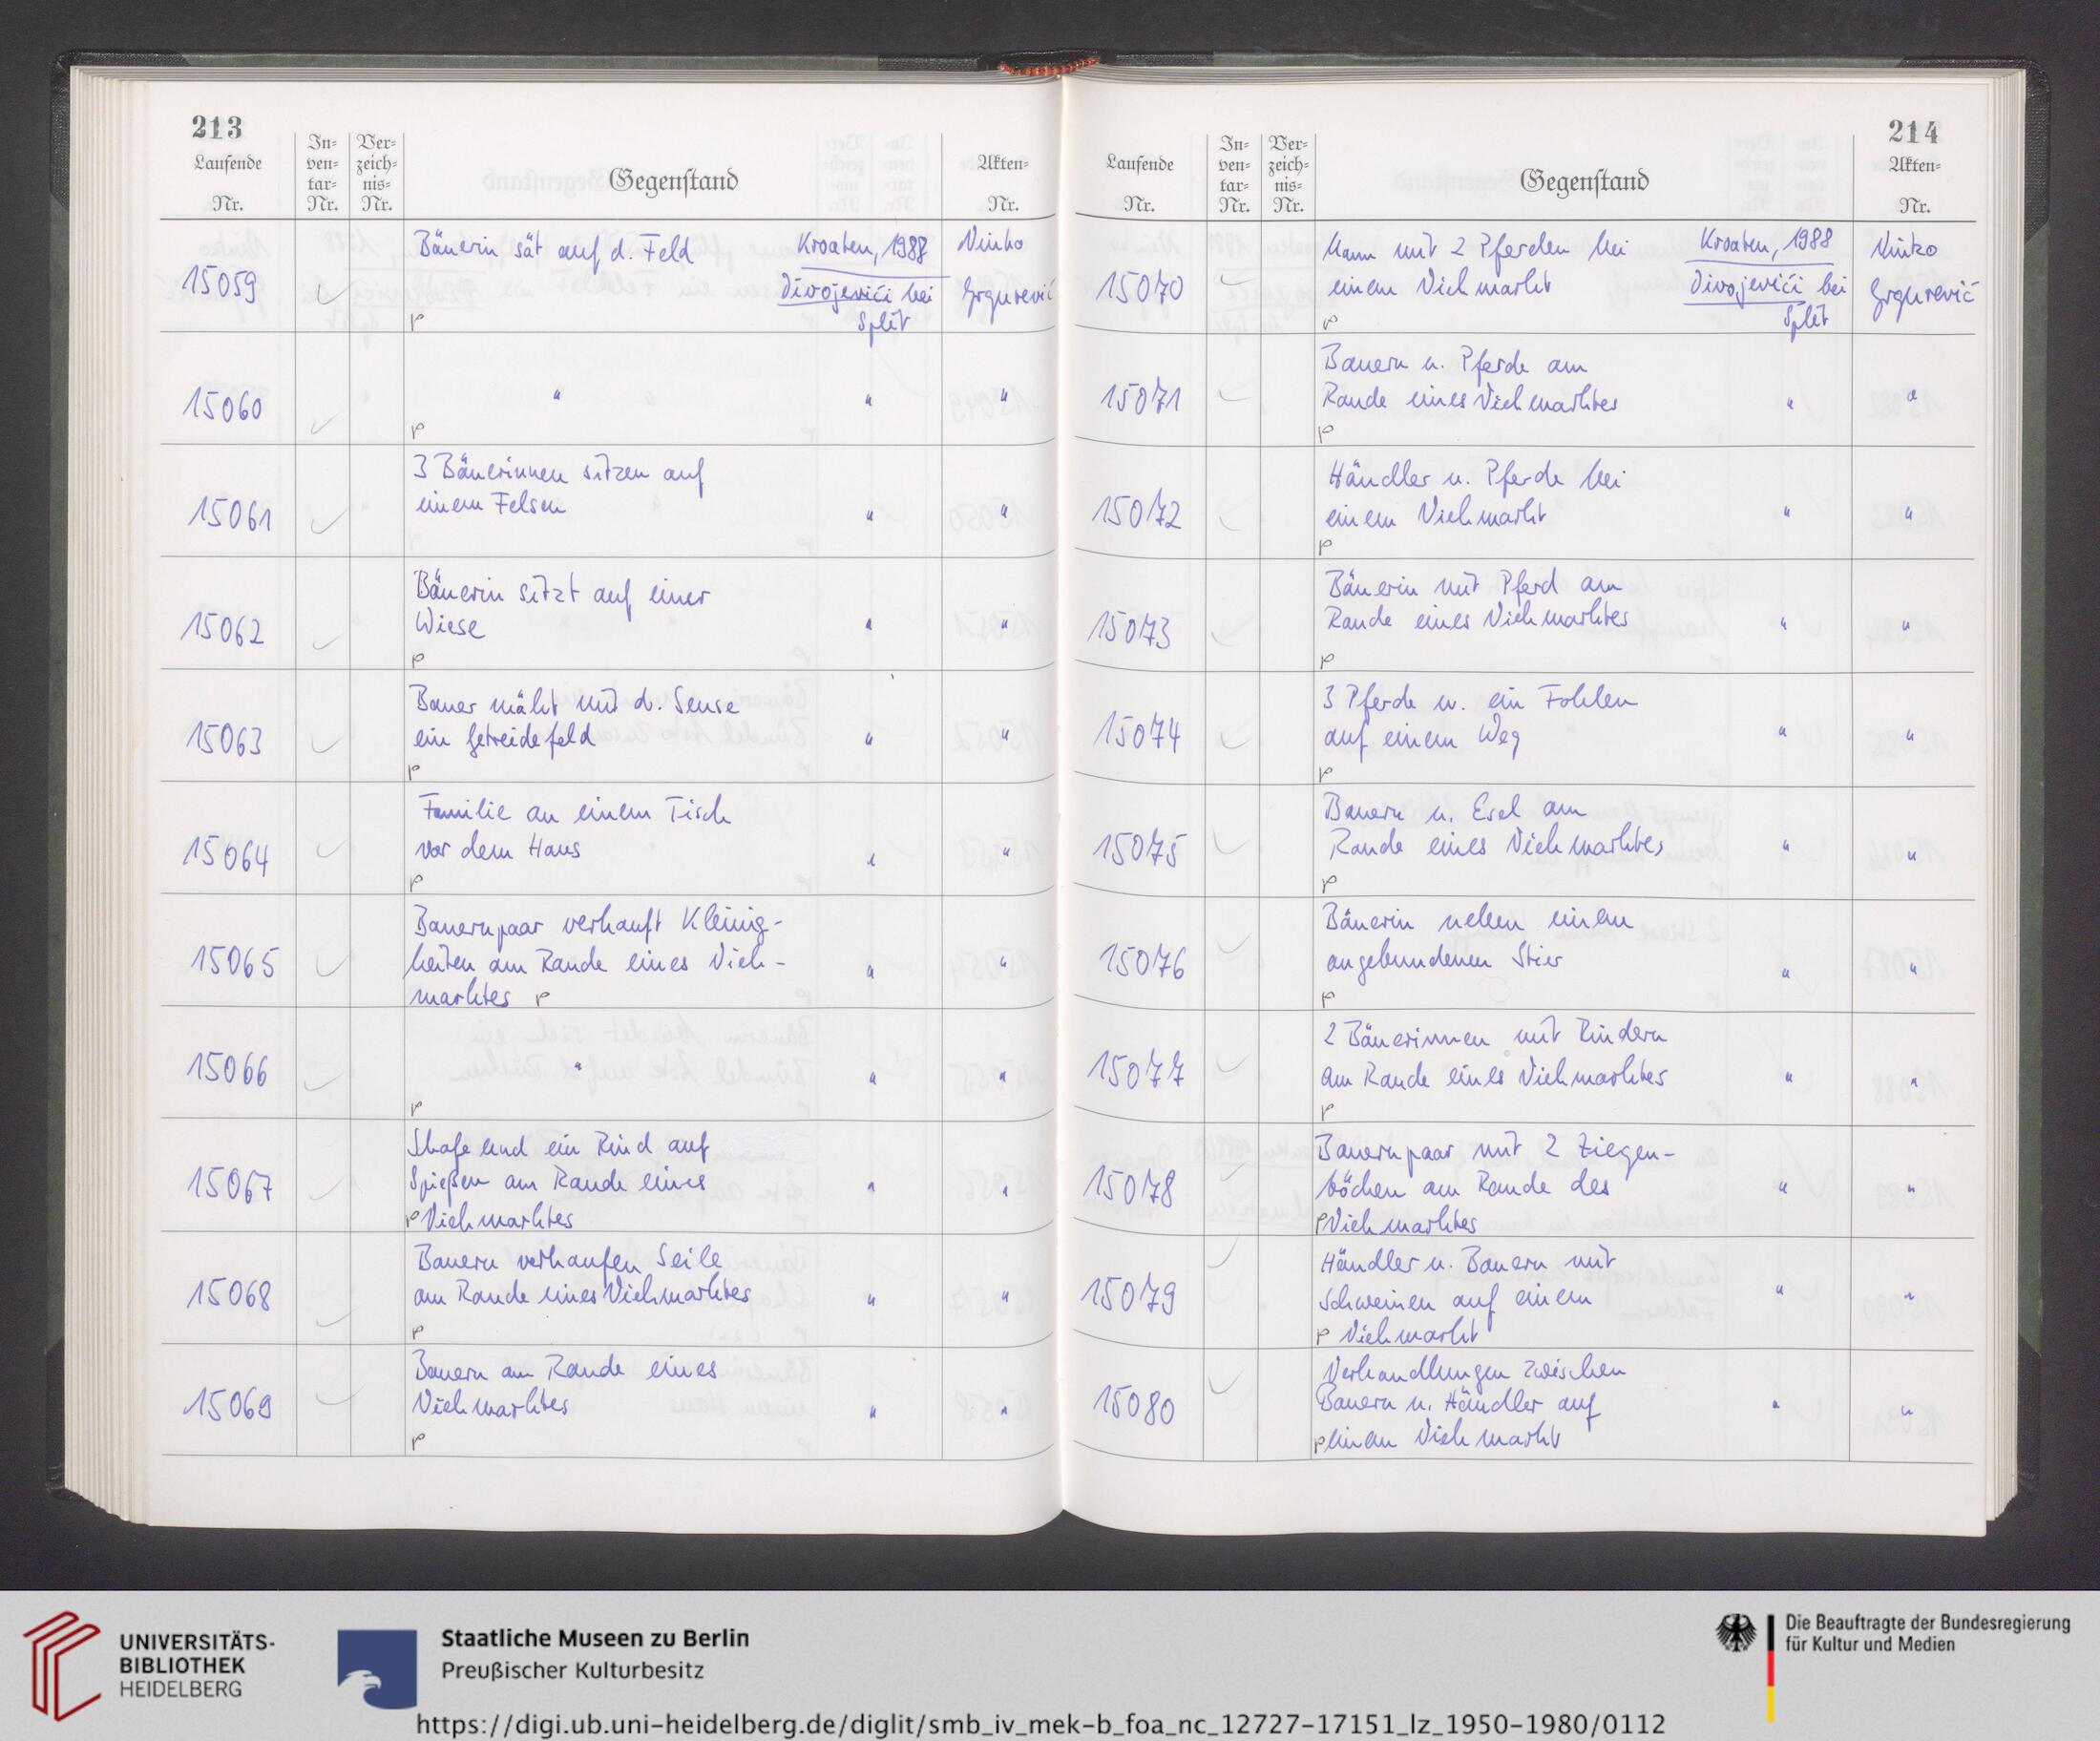 213
Laufende Nr.
In-ven-tar-Nr.
Ver-zeich-nis-Nr.
Gegenstand
Akten-Nr.
15059 Bäuerin sät auf d. Feld Kroatien, 1988 Ninko
Divojevići bei Grgurević
p Split
15060 " " "
p
3 Bäuerinnen sitzen auf
15061 einem Felsen " "
Bäuerin sitzt auf einer
15062 Wiese " "
p
Bauer mäht mit d. Sense
15063 ein Getreidefeld " "
p
Familie an einem Tisch
15064 vor dem Haus " "
p
Bauernpaar verkauft Kleinig-
15065 keiten am Rande eines Vieh- " "
marktes p
15066 " " "
p
Schafe und ein Rind auf
15067 Spießen am Rande eines " "
p Viehmarktes
Bauern verkaufen Seile
15068 am Rande eines Viehmarktes " "
p
Bauern am Rande eines
15069 Viehmarktes " "
p
214
Laufende Nr.
In-ven-tar-Nr.
Ver-zeich-nis-Nr.
Gegenstand
Akten-Nr.
Mann mit 2 Pferden bei Kroatien, 1988 Ninko
15070 einem Viehmarkt Divojevići bei Grgurević
p Split
Bauern u. Pferde am
15071 Rande eines Viehmarktes " "
p
Händler u. Pferde bei
15072 einem Viehmarkt " "
p
Bäuerin mit Pferd am
15073 Rande eines Viehmarktes " "
p
3 Pferde u. ein Fohlen
15074 auf einem Weg " "
p
Bauern u. Esel am
15075 Rande eines Viehmarktes " "
p
Bäuerin neben einem
15076 angebundenen Stier " "
p
2 Bäuerinnen mit Rindern
15077 am Rande eines Viehmarktes " "
p
Bauernpaar mit 2 Ziegen-
15078 böcken am Rande des " "
p Viehmarktes
Händler u. Bauern mit
15079 Schweinen auf einem " "
p Viehmarkt
Verhandlungen zwischen
15080 Bauern u. Händler auf " "
p einem Viehmarkt
UNIVERSITÄTS-
BIBLIOTHEK
HEIDELBERG
Staatliche Museen zu Berlin
Preußischer Kulturbesitz
Die Beauftragte der Bundesregierung
für Kultur und Medien
https://digi.ub.uni-heidelberg.de/diglit/smb_iv_mek-b_foa_nc_12727-17151_lz_1950-1980/0112